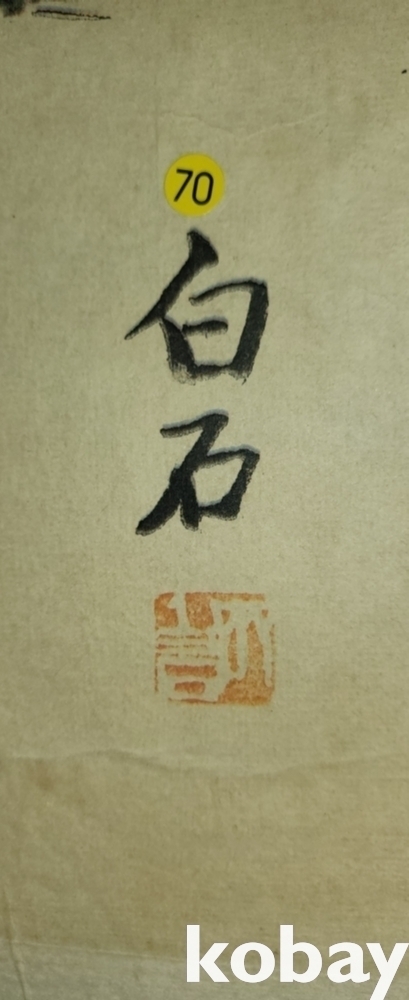 70
白
石
kobay